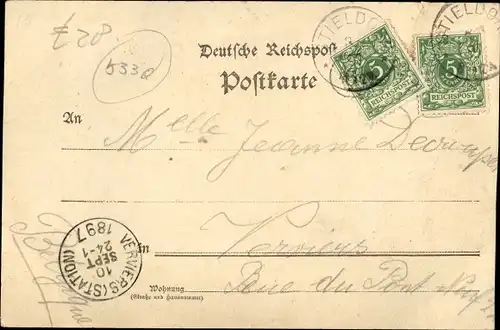 £ 28
533a
TIELDO
TIELDO
Deutsche Reichspost
Postkarte
5
REICHSPOST
5
REICHSPOST
An
Melle Jeanne
VERVIERS (STATION)
10
SEPT
24-1
1897
in
Verviers
Wohnung
(Straße und Hausnummer)
Rue du Pont
Belgique